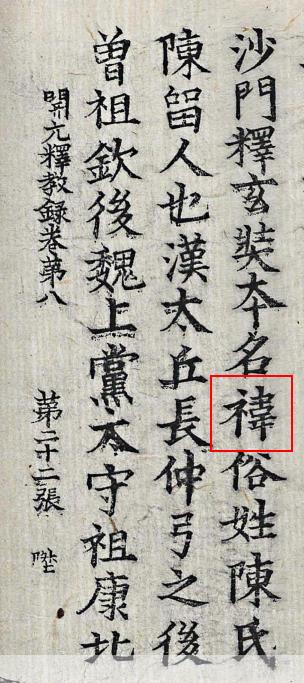 沙門釋玄奘夲名禕俗姓陳氏
陳留人也漢太丘長仲弓之後
曾祖欽後魏上黨太守祖康北
開元釋教録卷第八 第二十二張